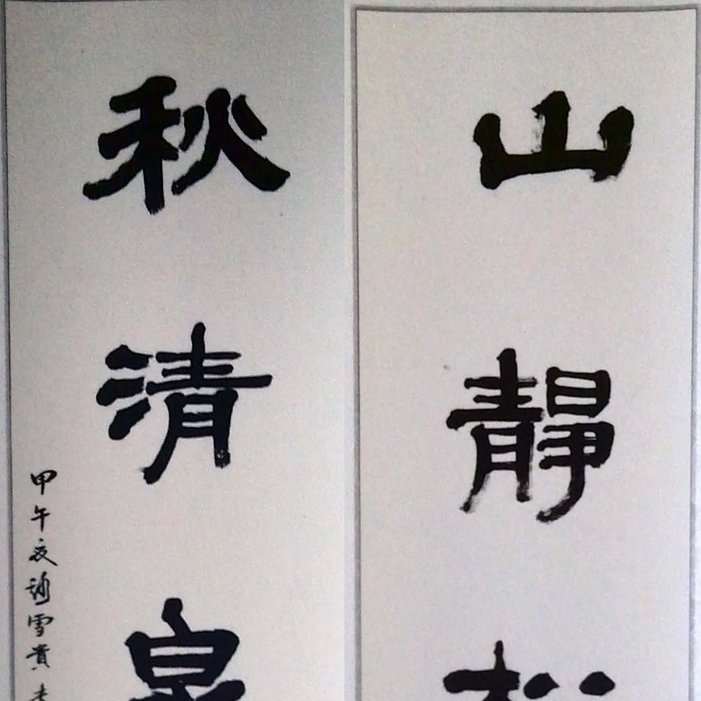 山靜松
秋清泉
甲午夜雪貴